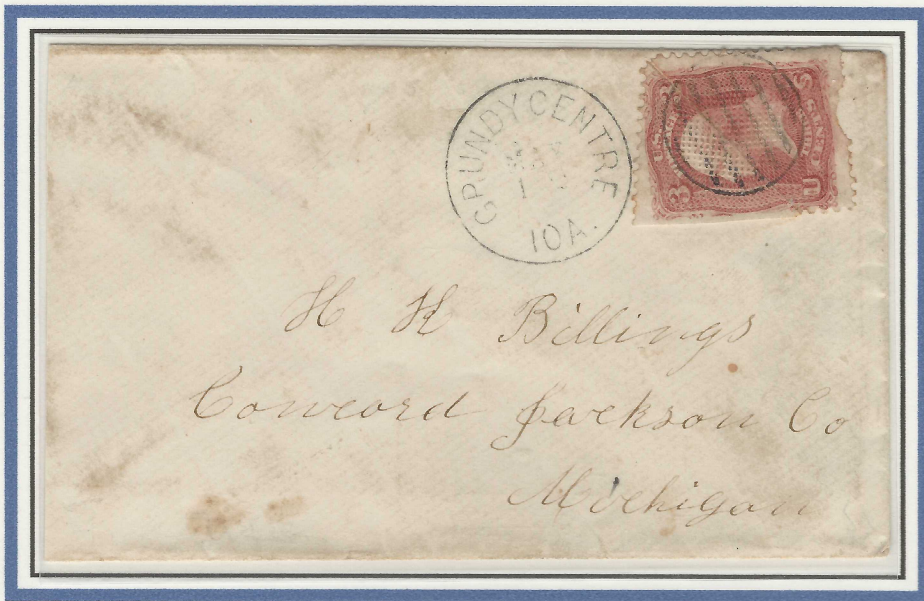 GRUNDY CENTRE
MAY
1
IOA.
3
U
H H Billings
Concord Jackson Co
Michigan